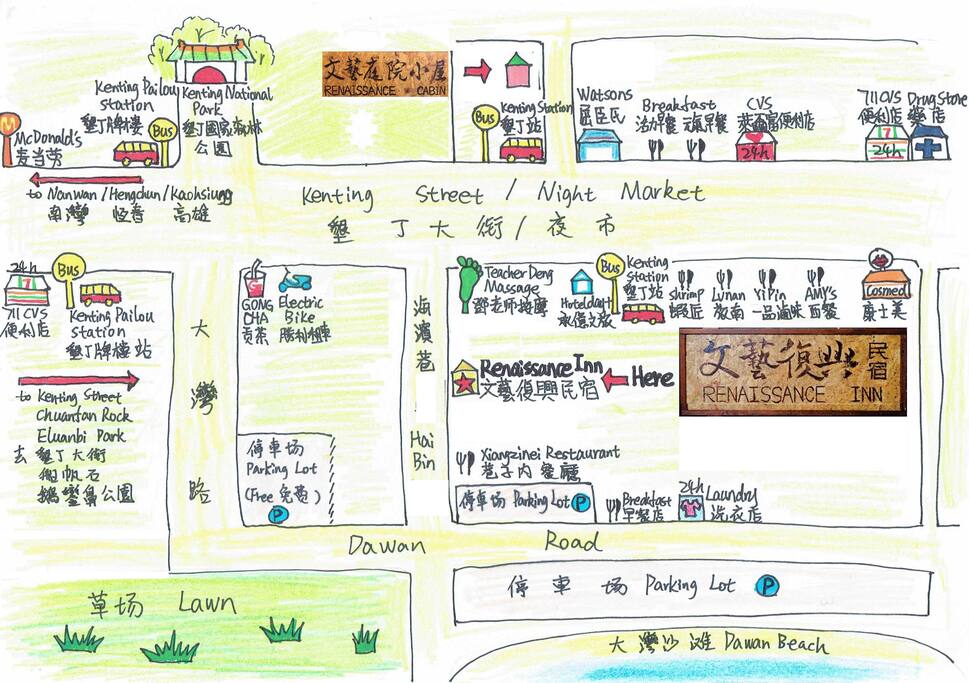 Kenting Pailou
Station
墾丁牌樓
Bus
M
McDonald's
麦当劳
Kenting National
Park
墾丁國家森林
公園
文藝庭院小屋
RENAISSANCE CABIN
Bus
Kenting Station
墾丁站
Watsons
屈臣氏
Breakfast
活力早餐 元氣早餐
CVS
便利店
24h
711 CVS
便利店
7
24h
Drug Store
藥店
to Nanwan/Hengchun/Kaohsiung
南灣 恆春 高雄
Kenting Street / Night Market
墾丁大街/夜市
24h
7
711 CVS
便利店
Bus
Kenting Pailou
Station
墾丁牌樓站
to Kenting Street
Chuanfan Rock
Eluanbi Park
去 墾丁大街
船帆石
鵝鑾鼻公園
大灣路
GONG
CHA
貢茶
Electric
Bike
勝利租車
停車场
Parking Lot
(Free 免費)
P
海濱巷
Hai
Bin
Teacher Deng
Massage
鄧老師按摩
Hotel
Bus
Kenting
Station
墾丁站
shrimp
蝦近
Lunan
YiPin
一品滷味
AMY's
西餐
Cosmed
康士美
Renaissance Inn
文藝復興民宿
Here
文藝復興民宿
RENAISSANCE INN
Xiangzinei Restaurant
巷子内餐廳
停車场 Parking Lot P
Breakfast
早餐店
24h
Laundry
洗衣店
Dawan Road
草场 Lawn
停車场 Parking Lot P
大灣沙滩 Dawan Beach